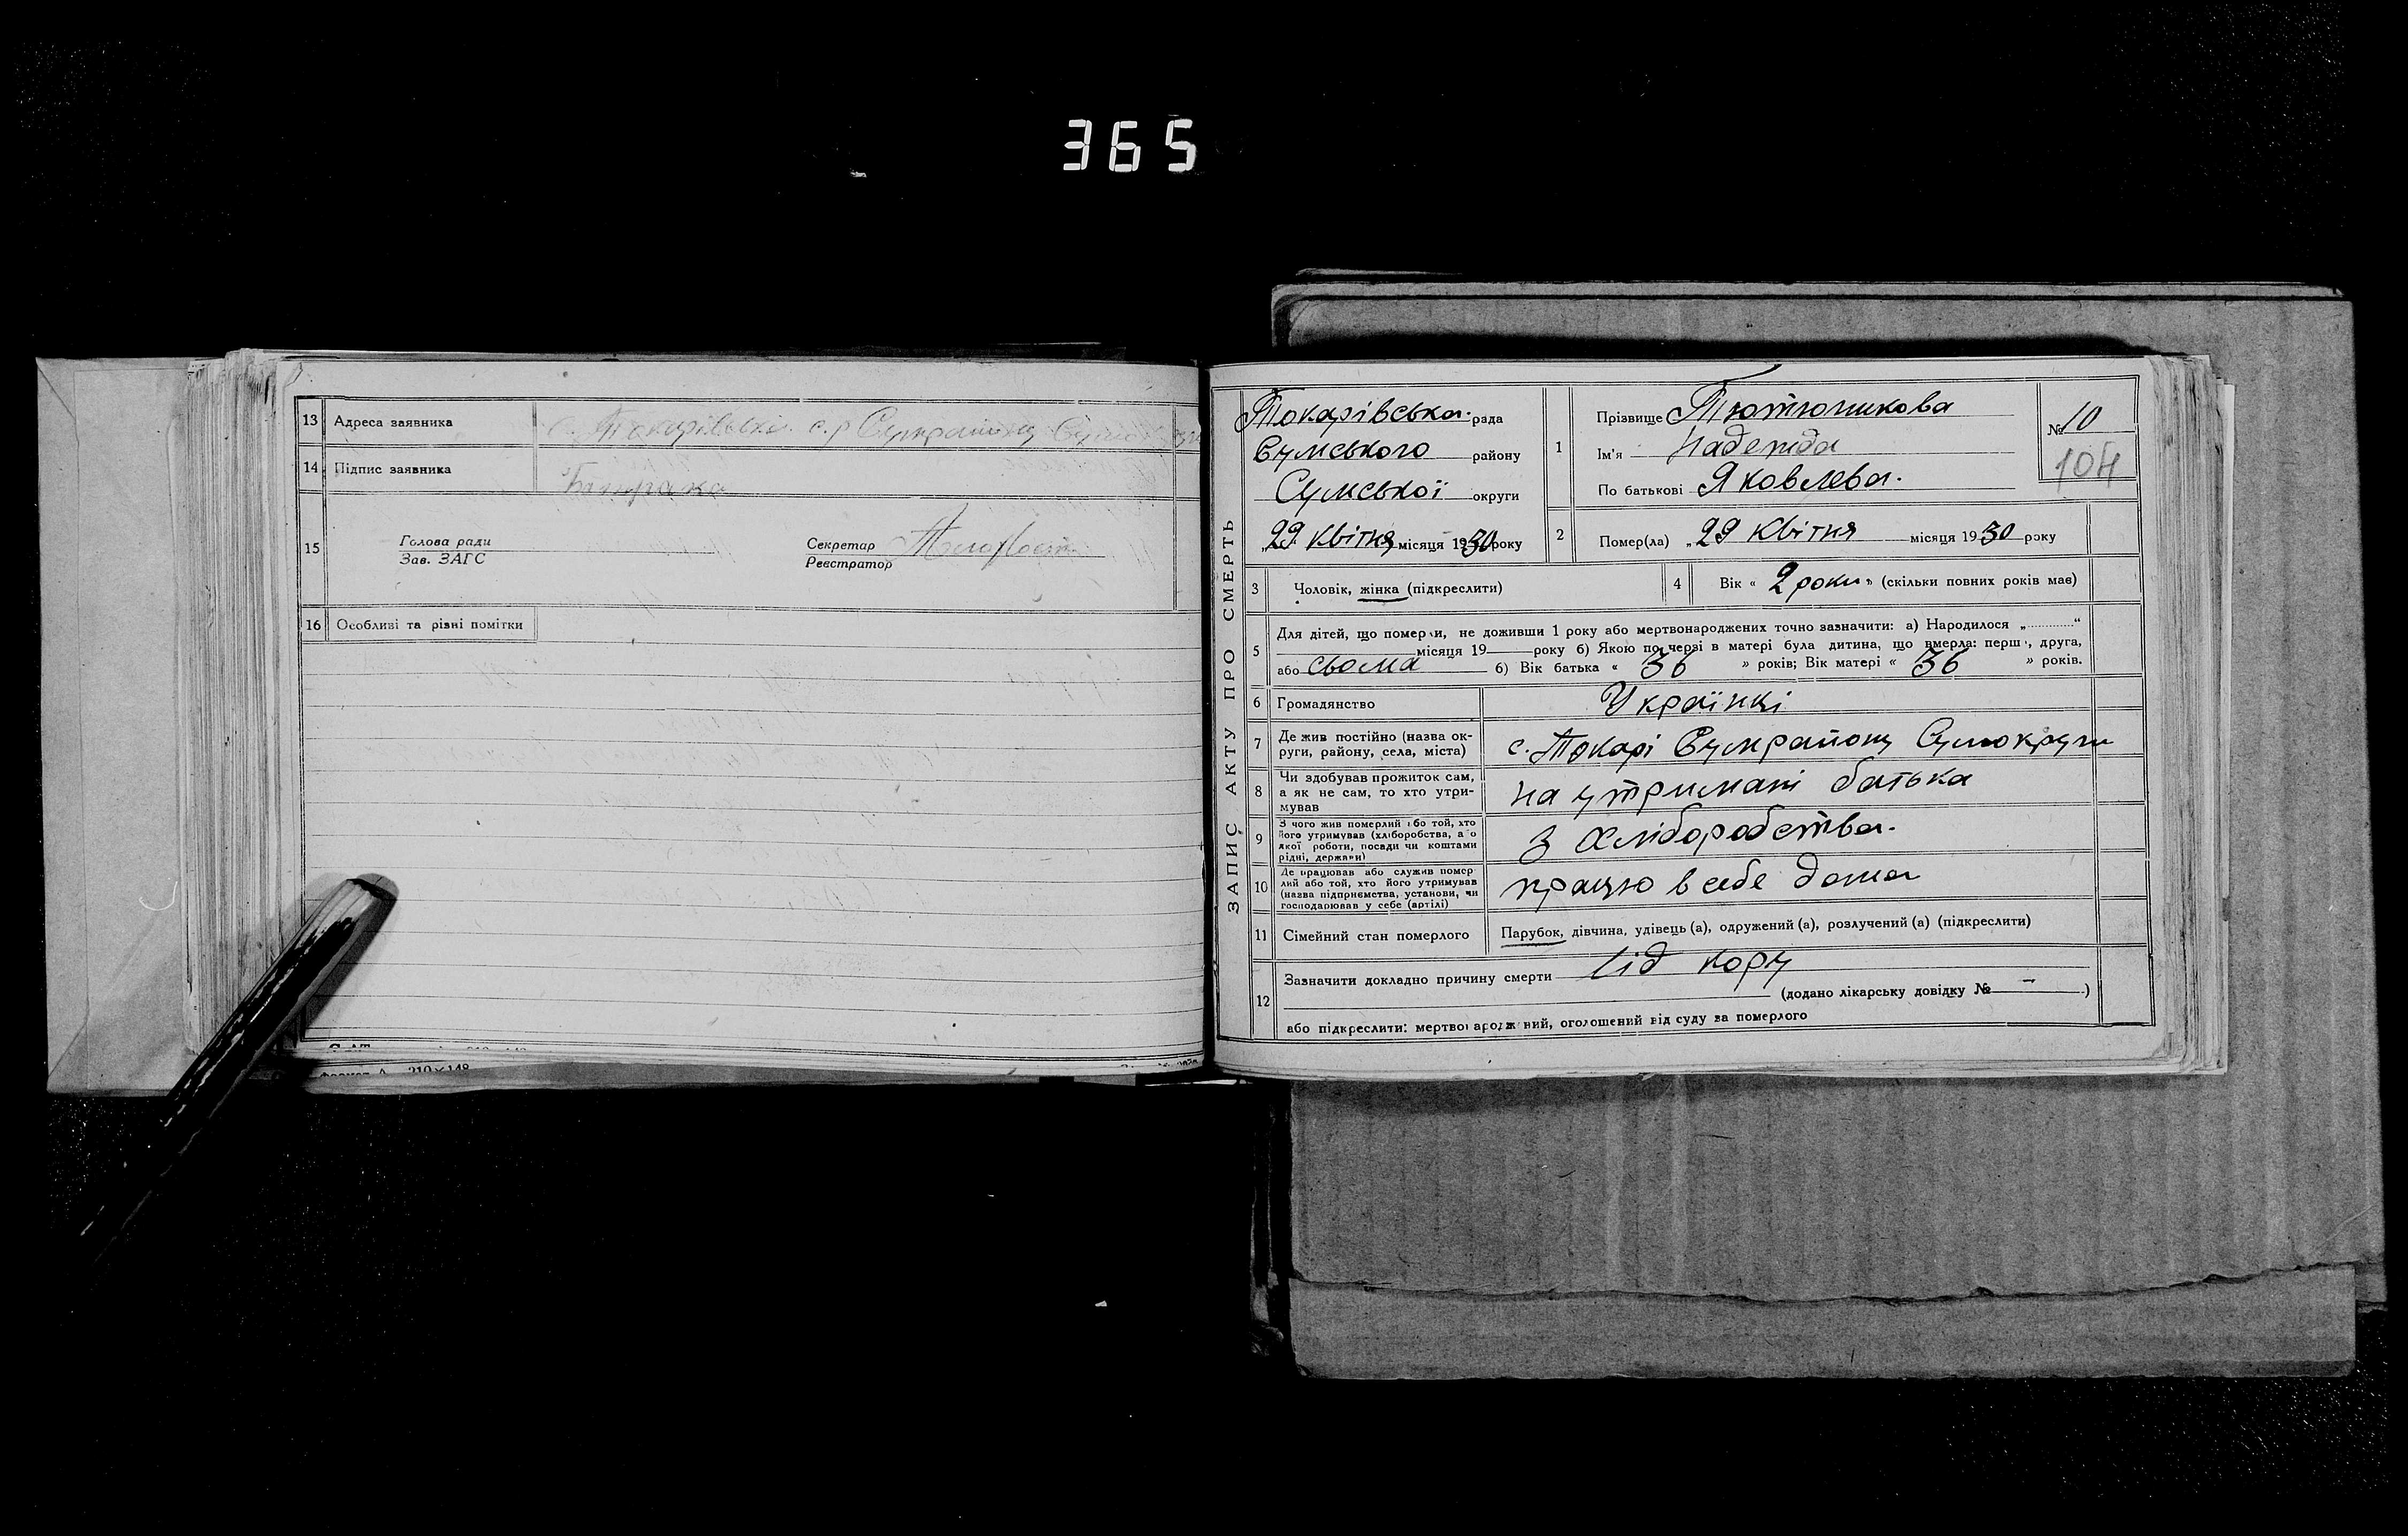 365
13 Адреса заявника с. Токарівська с.р Сумрайону
14 Підпис заявника
15 Голова ради
Зав. ЗАГС
Секретар
Реєстратор
16 Особливі та різні помітки
Формат А 210×148
ЗАПИС АКТУ ПРО СМЕРТЬ
Токарівська рада
Сумського району
Сумської округи
„29 Квітня місяця 1930 року
1 Прізвище Тютюникова
Ім'я Надежда
По батькові Яковлева.
№ 10
104
2 Помер(ла) „29 Квітня місяця 1930 року
3 Чоловік, жінка (підкреслити)
4 Вік « 2 роки » (скільки повних років мав)
5 Для дітей, що померли, не доживши 1 року або мертвонароджених точно зазначити: а) Народилося „............“
місяця 19 року б) Якою по черзі в матері була дитина, що вмерла: перша, друга,
або сьома б) Вік батька « 36 » років; Вік матері « 36 » років.
6 Громадянство Українкі
7 Де жив постійно (назва ок-
руги, району, села, міста) с. Токарі Сумрайону Сумокруги
8 Чи здобував прожиток сам,
а як не сам, то хто утри-
мував на утримані батька
9 З чого жив померлий або той, хто
його утримував (хліборобства, або
якої роботи, посади чи коштами
рідні, держави) з Хліборобства.
10 Де працював або служив помер-
лий або той, хто його утримував
(назва підприємства, установи, чи
господарював у себе (артілі) працю в себе дома
11 Сімейний стан померлого Парубок, дівчина, удівець (а), одружений (а), розлучений (а) (підкреслити)
12 Зазначити докладно причину смерти від кору
(додано лікарську довідку № – )
або підкреслити: мертвонароджений, оголошений від суду за померлого